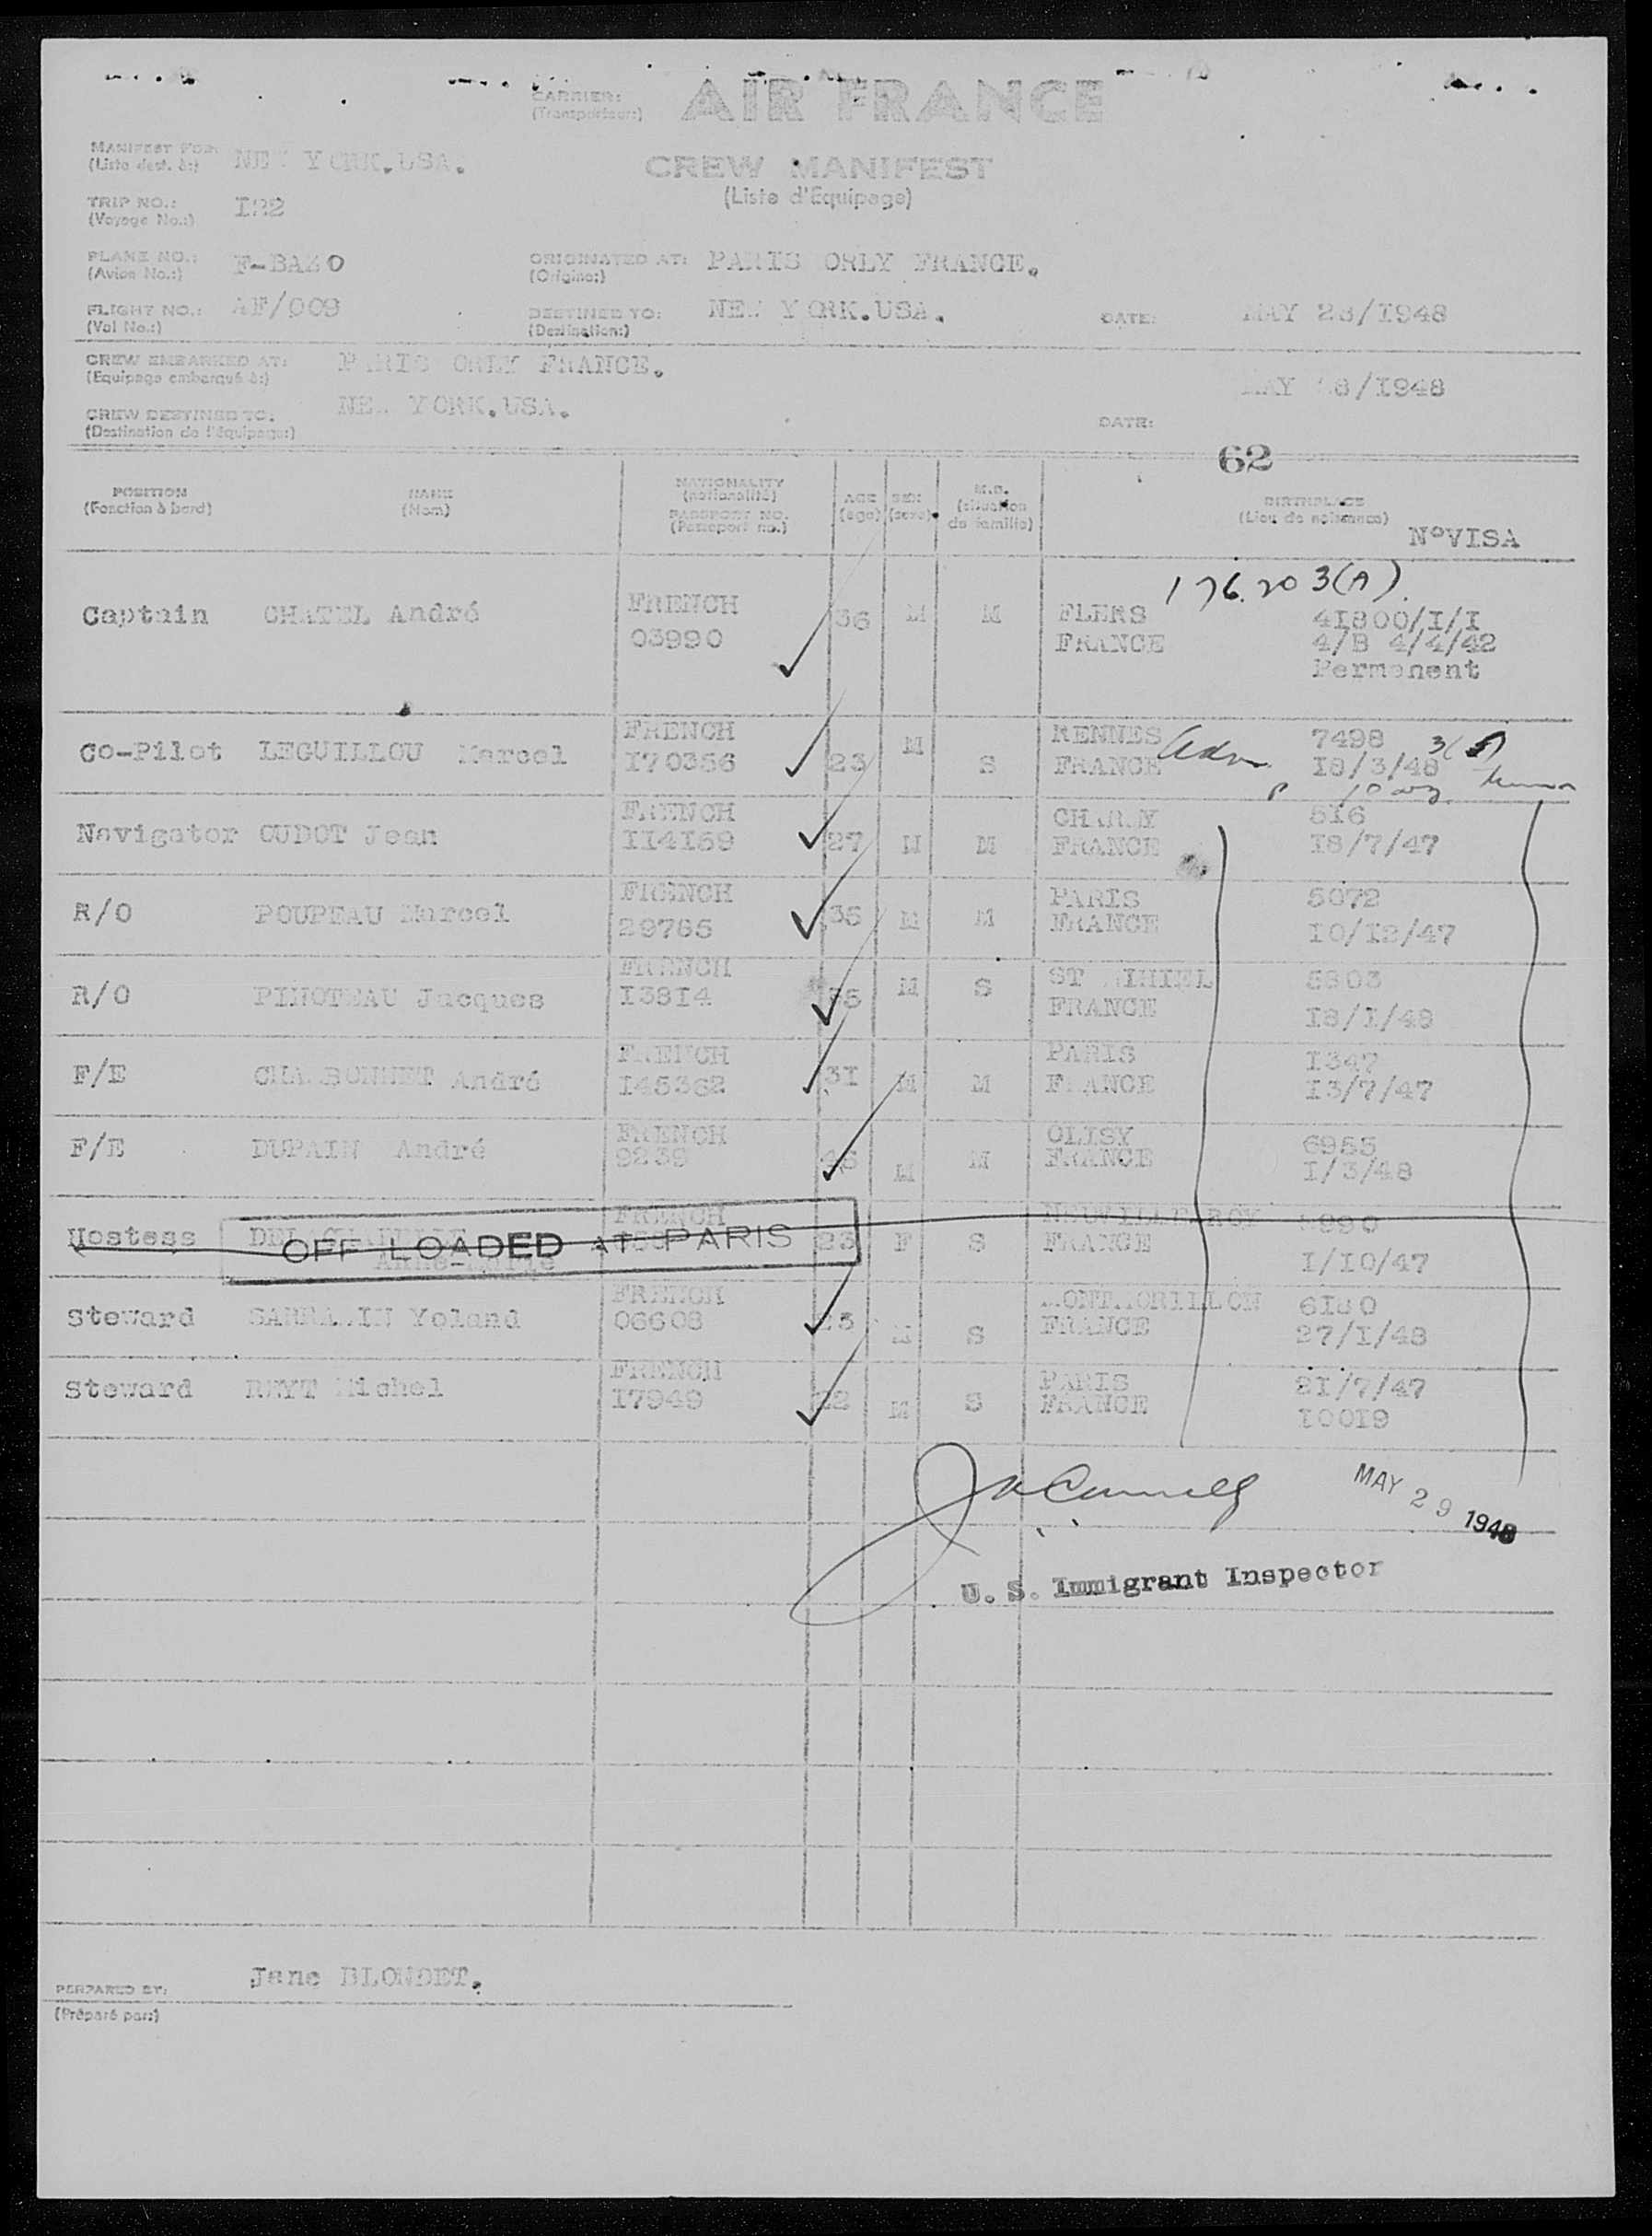 CARRIER: AIR FRANCE
(Transporteur:)
MANIFEST FOR: NEW YORK.USA.
(Liste dest. à:)
CREW MANIFEST
(Liste d'Equipage)
TRIP NO.: I22
(Voyage No.:)
PLANE NO.: F-BAZO
(Avion No.:)
ORIGINATED AT: PARIS ORLY FRANCE.
(Origine:)
FLIGHT NO.: AF/009
(Vol No.:)
DESTINED TO: NEW YORK.USA.
(Destination:)
DATE: MAY 28/I948
CREW EMBARKED AT: PARIS ORLY FRANCE.
(Equipage embarqué à:)
MAY 28/I948
CREW DESTINED TO: NEW YORK.USA.
(Destination de l'équipage:)
DATE:
62
POSITION NAME NATIONALITY AGE SEX M.S. BIRTHPLACE
(Fonction à bord) (Nom) (nationalité) (age) (sexe) (situation de famille) (Lieu de naissance)
PASSPORT NO.
(Passeport no.)
N°VISA
176.20 3(A)
Captain CHATEL André FRENCH 36 M M FLERS 4I800/I/I
03990 FRANCE 4/B 4/4/42
Permanent
Co-Pilot LEGUILLOU Marcel FRENCH 23 M S RENNES 7498
I70356 FRANCE I8/3/48
Navigator OUDOT Jean FRENCH 27 M M 5I6
II4I59 FRANCE I8/7/47
R/O POUPEAU Marcel FRENCH 35 M M PARIS 5072
29785 FRANCE I0/I2/47
R/O PINOTEAU Jacques FRENCH M S ST MIHIEL 5803
I38I4 FRANCE I8/I/48
F/E CHARBONNET André FRENCH 3I M M PARIS I347
I45362 FRANCE I3/7/47
F/E DUPAIN André FRENCH M M OLISY 6985
9239 FRANCE I/3/48
Hostess FRENCH 23 F S NEUVILLE-ROY
Anne-Marie FRANCE I/I0/47
OFF LOADED AT PARIS
Steward Yoland FRENCH M S MONTMORILLON 6I80
06608 FRANCE 27/I/48
Steward REYT Michel FRENCH 22 M S PARIS 2I/7/47
I7949 FRANCE I00I9
MAY 29 1948
U. S. Immigrant Inspector
PERPARED BY: Jane BLONDET.
(Préparé par:)